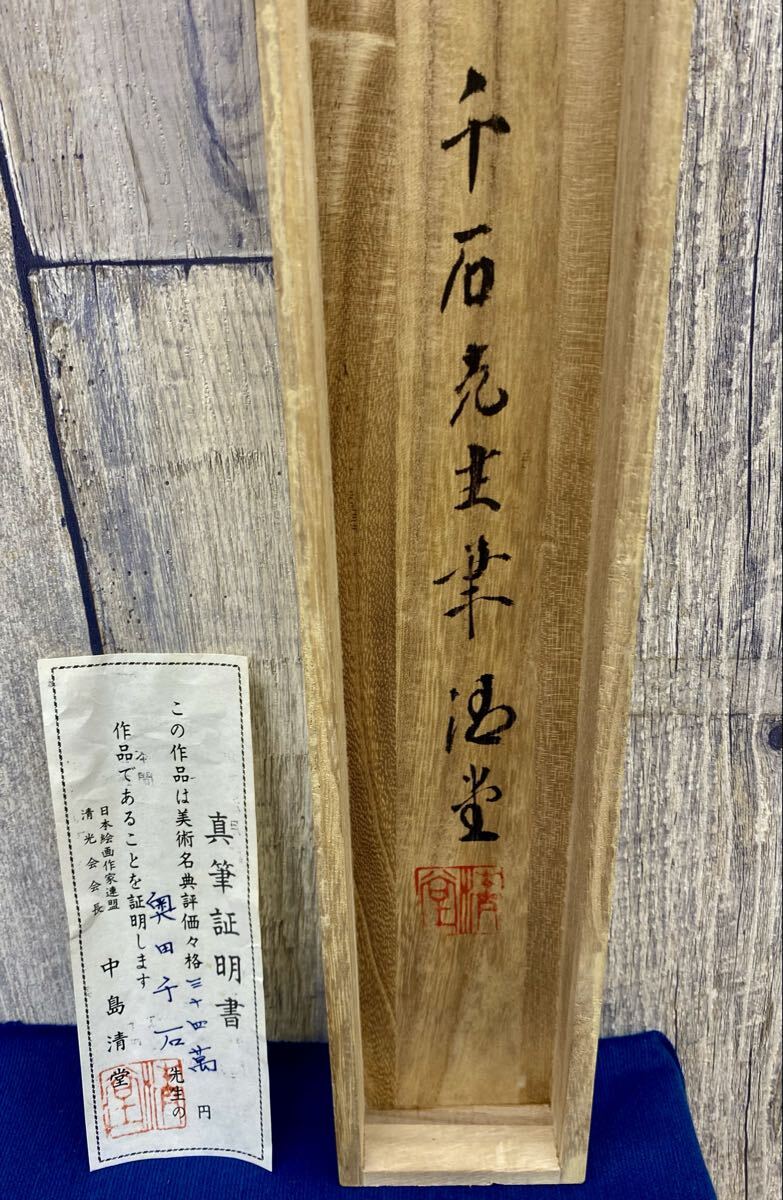 千石先生筆清堂
清堂
真筆証明書
この作品は美術名典評価々格三十四萬円
奥田千石先生の
作品であることを証明します
日本絵画作家連盟
清光会会長
中島清堂
清堂